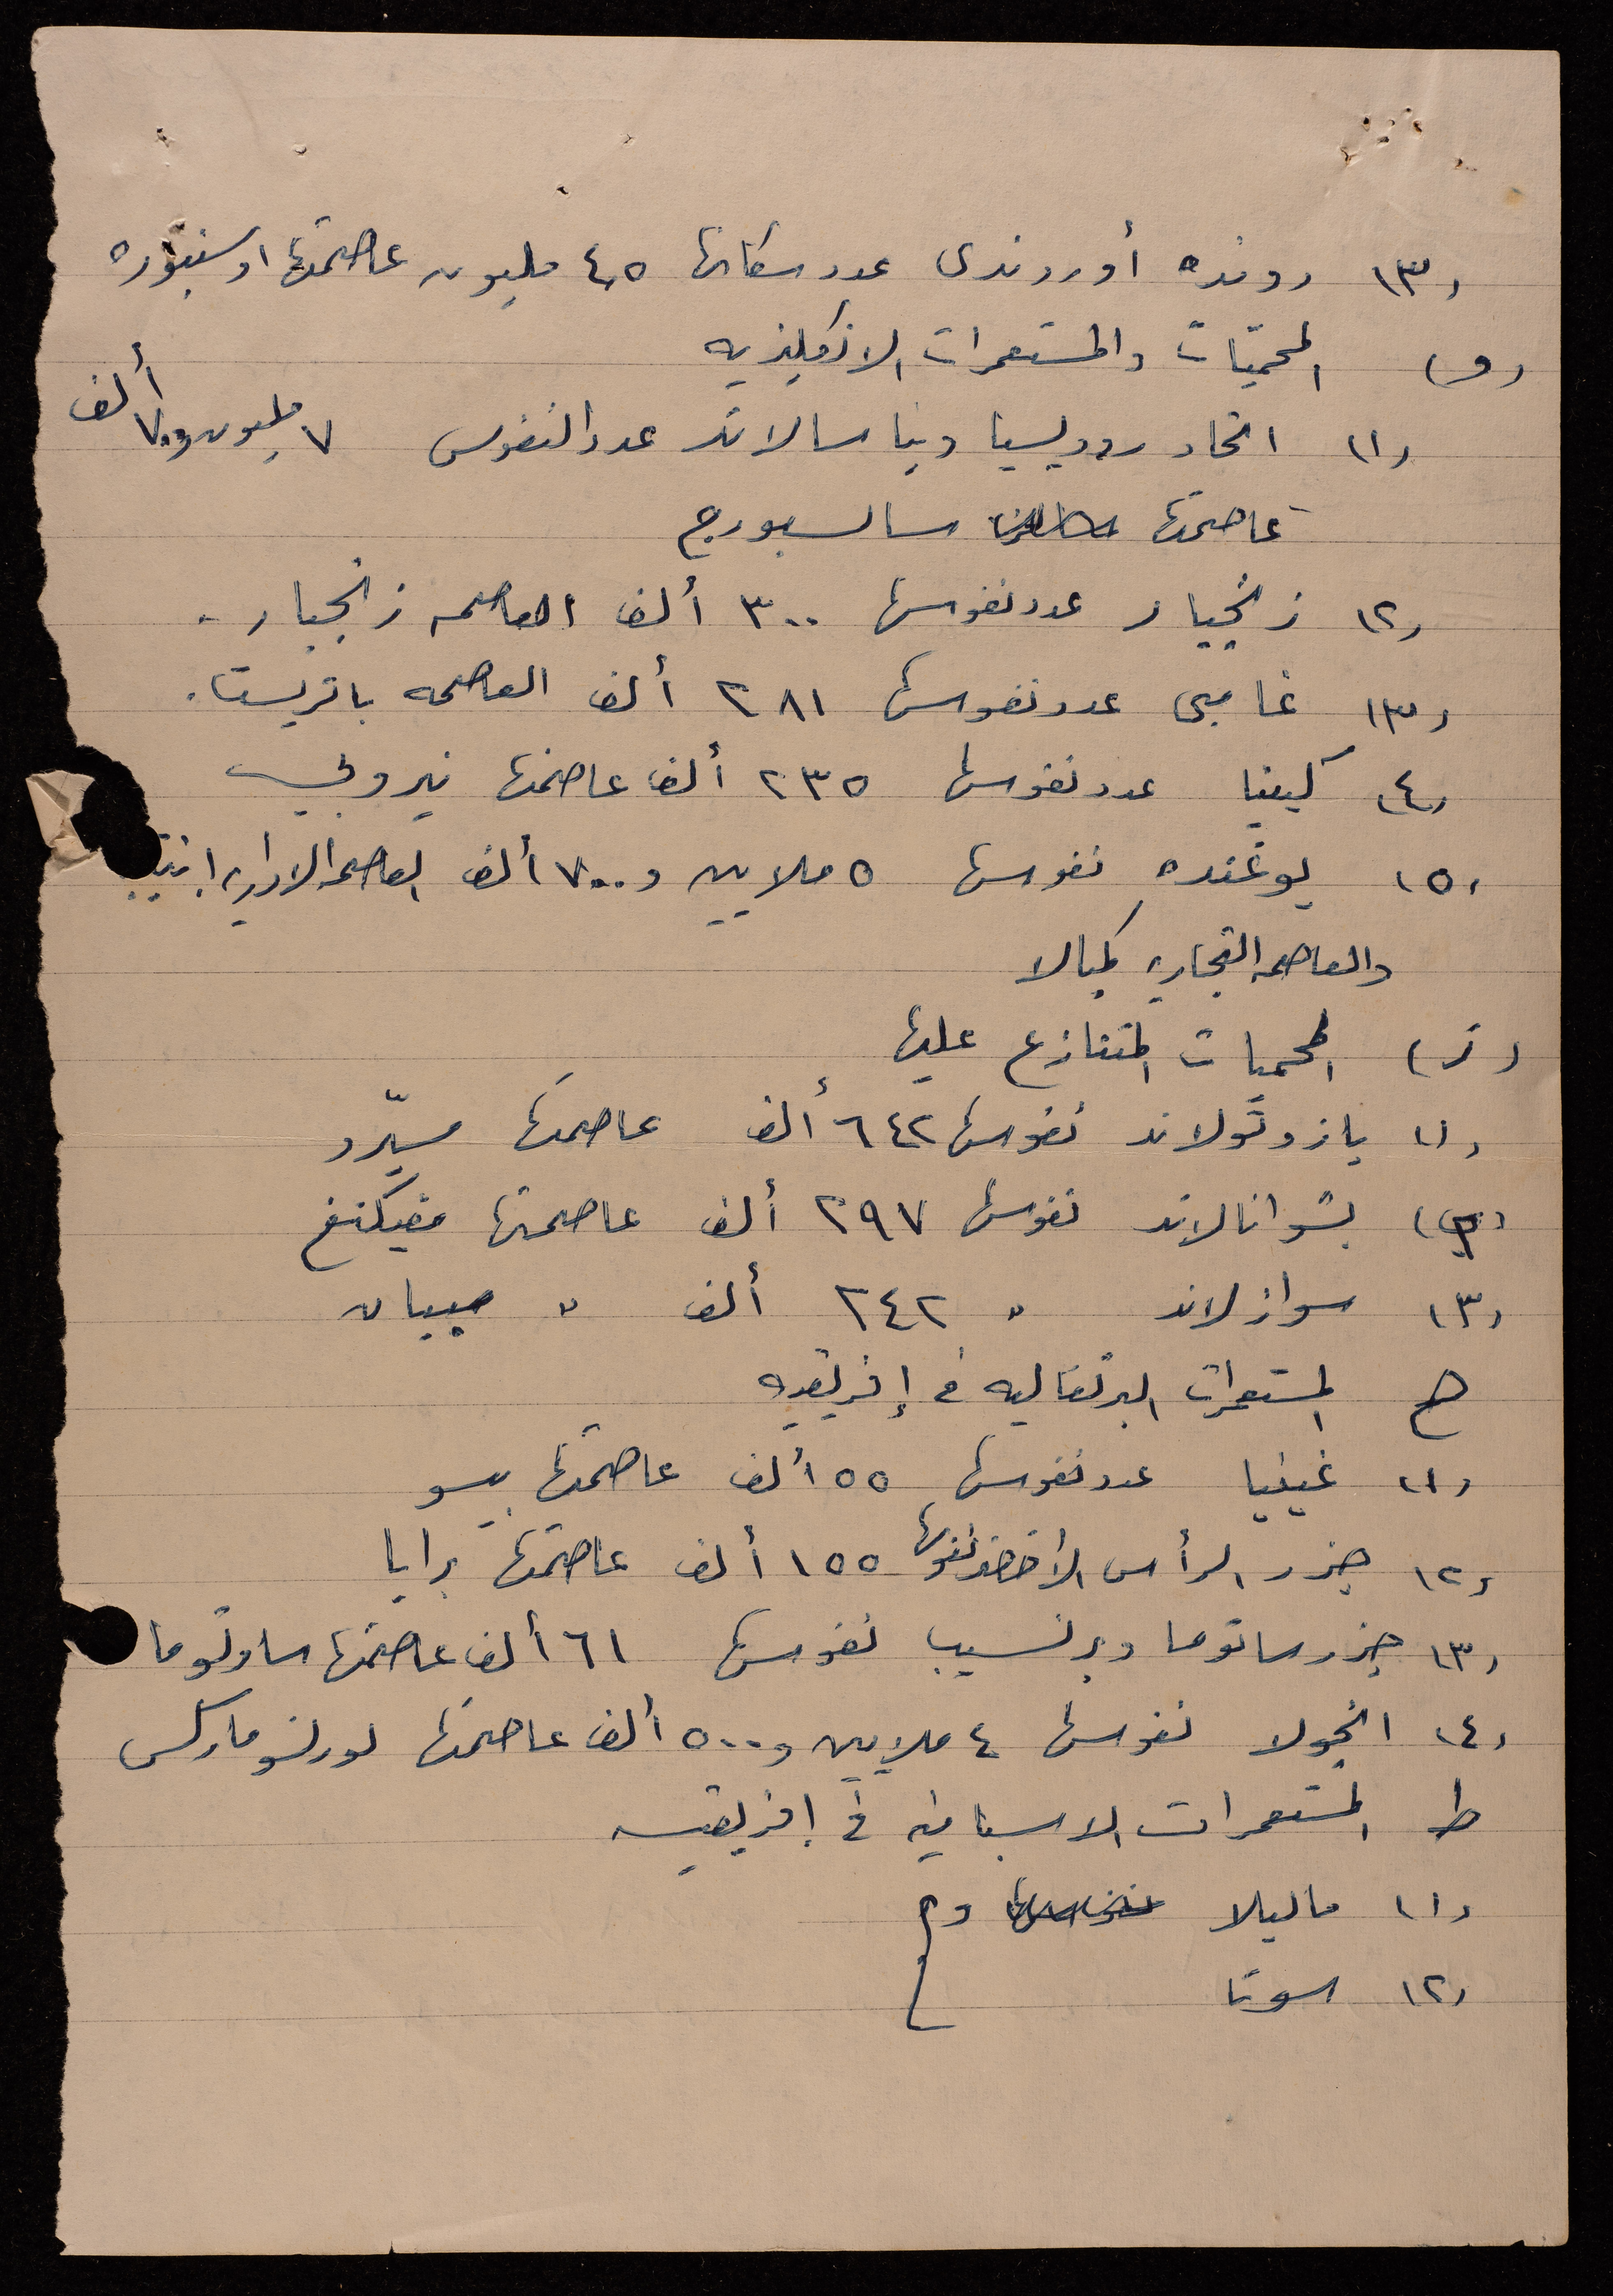 (٣) روندة أوروندى عدد سكانها ٤,٥ مليون عاصمتها اوسنبوره
(و) المحميّات والمستعمرات الانكليزيه
(١) اتحاد روديسيا ونياسالاند عدد النفوس ٧ مليون و٧٠٠ ألف
عاصمتها سالسبورج
(٢) زنجبار عدد نفوسها ٣٠٠ ألف العاصمه زنجبار.
(٣) غامبى عدد نفوسها ٢٨١ ألف العاصمه باتريستا.
(٤) كينيا عدد نفوسها ٢٣٥ ألف عاصمتها نيروبي
(٥) يوغنده نفوسها ٥ ملايين و٧٠٠ ألف العاصمه الاداريه
والعاصمه التجاريه كمبالا
(ز) المحميات المتنازع عليها
(١) بازوتولاند نفوسها ٦٤٢ ألف عاصمتها مسيّرو
(٢) بتشوانالاند نفوسها ٢٩٧ ألف عاصمتها مفيكنغ
(٣) سوازلاند " ٢٤٢ ألف " مبيبان
ح المستعمرات البرتغاليه في إفريقيه
(١) غينيا عدد نفوسها ٥٥ ألف عاصمتها بيسو
(٢) جزر الرأس الأخضر نفوسها ١٥٥ ألف عاصمتها برايا
(٣) جزر ساتوما وبرنسيب نفوسها ٦١ ألف عاصمتها ساوتوما
(٤) انجولا نفوسها ٤ ملايين و٥٠٠ ألف عاصمتها لورنسو ماركس
ط المستعمرات الاسبانيه في إفريقيه
(١) ماليلا
(٢) سوتا